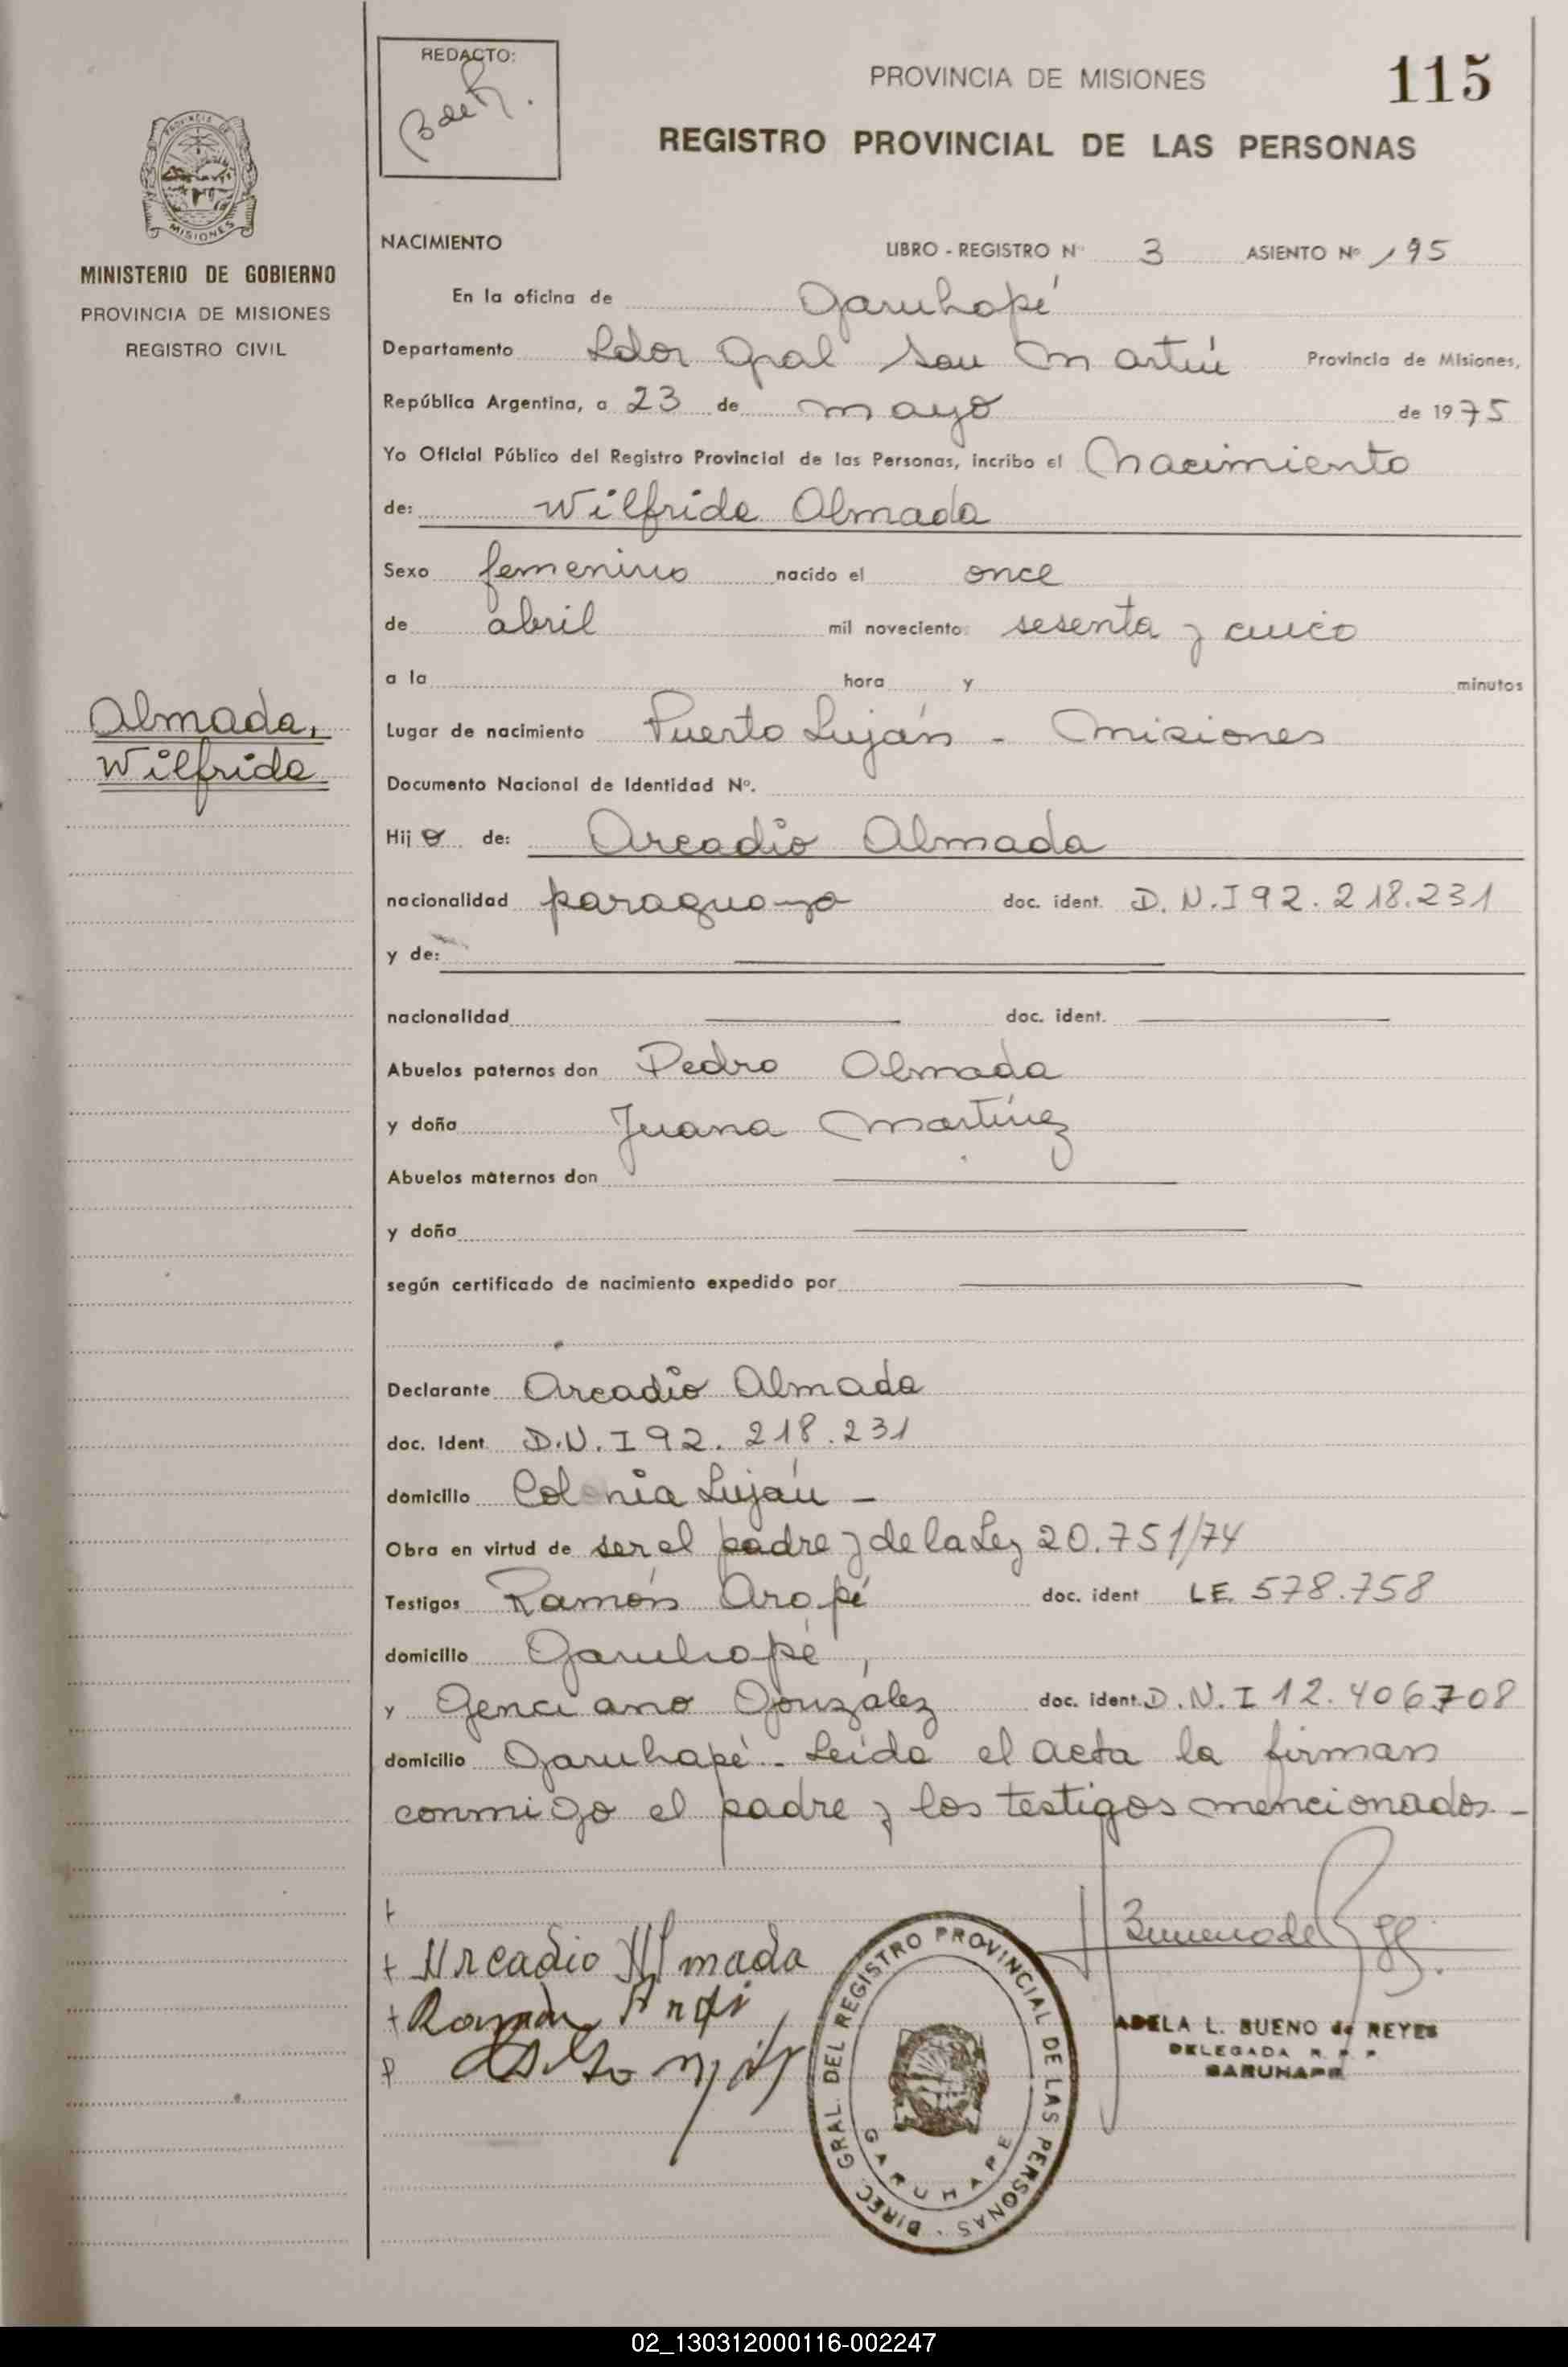 REDACTO:
B de R.
PROVINCIA DE MISIONES
115
REGISTRO PROVINCIAL DE LAS PERSONAS
PROVINCIA DE
MISIONES
MINISTERIO DE GOBIERNO
PROVINCIA DE MISIONES
REGISTRO CIVIL
NACIMIENTO LIBRO - REGISTRO Nº 3 ASIENTO Nº 195
En la oficina de Garuhapé
Departamento Ldor Gral San Martín Provincia de Misiones,
República Argentina, a 23 de mayo de 1975
Yo Oficial Público del Registro Provincial de las Personas, incribo el Nacimiento
de: Wilfrida Almada
Sexo femenino nacido el once
de abril mil noveciento sesenta y cinco
a la hora y minutos
Almada,
Wilfrida
Lugar de nacimiento Puerto Luján - Misiones
Documento Nacional de Identidad Nº.
Hija de: Arcadio Almada
nacionalidad paraguaya doc. ident. D.N.I 92.218.231
y de:
nacionalidad doc. ident.
Abuelos paternos don Pedro Almada
y doña Juana Martínez
Abuelos maternos don
y doña
según certificado de nacimiento expedido por
Declarante Arcadio Almada
doc. Ident. D.N.I 92.218.231
domicilio Colonia Luján -
Obra en virtud de ser el padre y de la Ley 20.751/74
Testigos Ramón Aropé doc. ident LE. 578.758
domicilio Garuhapé,
y Genciano González doc. ident. D.N.I 12.406708
domicilio Garuhapé - Leída el acta la firman
conmigo el padre y los testigos mencionados -
Arcadio Almada
Ramón
Bueno de
GRAL. DEL REGISTRO PROVINCIAL DE LAS PERSONAS - DIREC.
GARUHAPE
ADELA L. BUENO de REYES
DELEGADA R. P. P
GARUHAPE
02_130312000116-002247